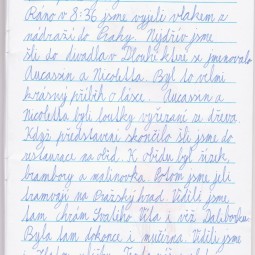 Ráno v 8:36 jsme vyjeli vlakem z
nádraží do Prahy. Nejdřív jsme
šli do divadla v Dlouhé které se jmenovalo
Aucassin a Nicoletta. Byl to velmi
krásný příběh o lásce. Aucassin a
Nicoletta byli loutky vyřezaní ze dřeva.
Když představení skončilo šli jsme do
restaurace na oběd. K obědu byl řízek,
brambory a malinovka. Potom jsme jeli
tramvají na Pražský hrad. Viděli jsme
tam chrám Svatého Víta i věž Daliborka.
Byla tam dokonce i mučírna. Viděli jsme
i Zlatou uličku.